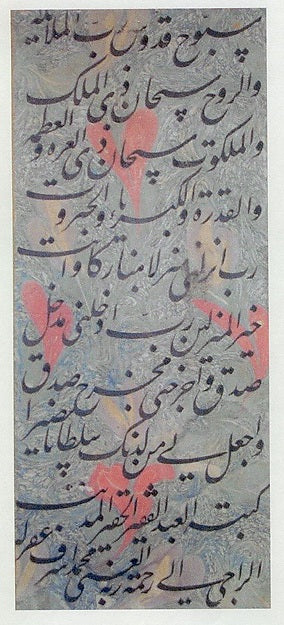 سبوح قدوس رب الملائكة
والروح سبحان ذى الملك
والملكوت سبحان ذى العزه و العظمه
والقدرة و الكبرياء والجبروت
رب انزلنى منزلا مباركا وانت
خير المنزلين رب ادخلنى مدخل
صدق واخرجنى مخرج صدق
واجعل لى من لدنك سلطانا نصيرا
كتبه العبد الفقير الحقير المذنب
الراجى الى رحمة ربه الغنى محمد اشرف غفر له